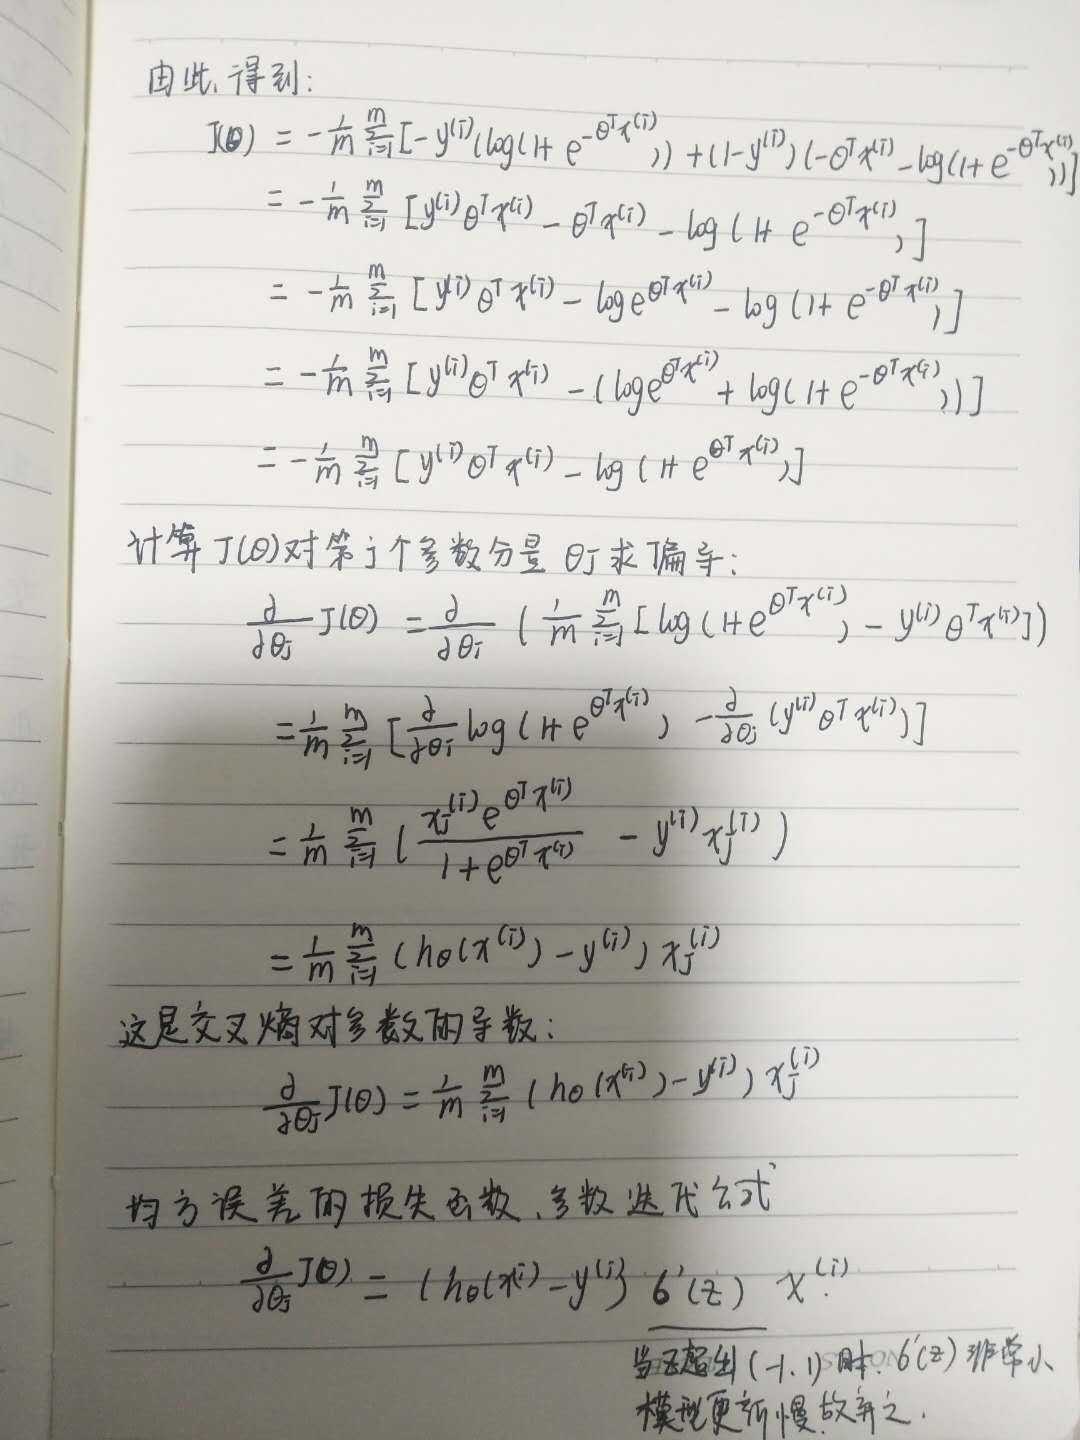 由此,得到:
J(θ) = -1/m Σ_{i=1}^{m} [-y^{(i)}(log(1+e^{-θ^T x^{(i)}})) + (1-y^{(i)})(-θ^T x^{(i)} - log(1+e^{-θ^T x^{(i)}}))]
= -1/m Σ_{i=1}^{m} [y^{(i)}θ^T x^{(i)} - θ^T x^{(i)} - log(1+e^{-θ^T x^{(i)}})]
= -1/m Σ_{i=1}^{m} [y^{(i)}θ^T x^{(i)} - log e^{θ^T x^{(i)}} - log(1+e^{-θ^T x^{(i)}})]
= -1/m Σ_{i=1}^{m} [y^{(i)}θ^T x^{(i)} - (log e^{θ^T x^{(i)}} + log(1+e^{-θ^T x^{(i)}}))]
= -1/m Σ_{i=1}^{m} [y^{(i)}θ^T x^{(i)} - log(1+e^{θ^T x^{(i)}})]
计算J(θ)对第j个参数分量θj求偏导:
∂/∂θ_j J(θ) = ∂/∂θ_j (1/m Σ_{i=1}^{m} [log(1+e^{θ^T x^{(i)}}) - y^{(i)}θ^T x^{(i)}])
= 1/m Σ_{i=1}^{m} [∂/∂θ_j log(1+e^{θ^T x^{(i)}}) - ∂/∂θ_j (y^{(i)}θ^T x^{(i)})]
= 1/m Σ_{i=1}^{m} (x_j^{(i)} e^{θ^T x^{(i)}} / (1+e^{θ^T x^{(i)}}) - y^{(i)} x_j^{(i)})
= 1/m Σ_{i=1}^{m} (h_θ(x^{(i)}) - y^{(i)}) x_j^{(i)}
这是交叉熵对参数的导数:
∂/∂θ_j J(θ) = 1/m Σ_{i=1}^{m} (h_θ(x^{(i)}) - y^{(i)}) x_j^{(i)}
均方误差的损失函数、参数迭代公式
∂/∂θ_j J(θ) = (h_θ(x^{(i)}) - y^{(i)}) σ'(z) x^{(i)}.
当z超出(-1,1)时,σ'(z)非常小
模型更新慢,故弃之.